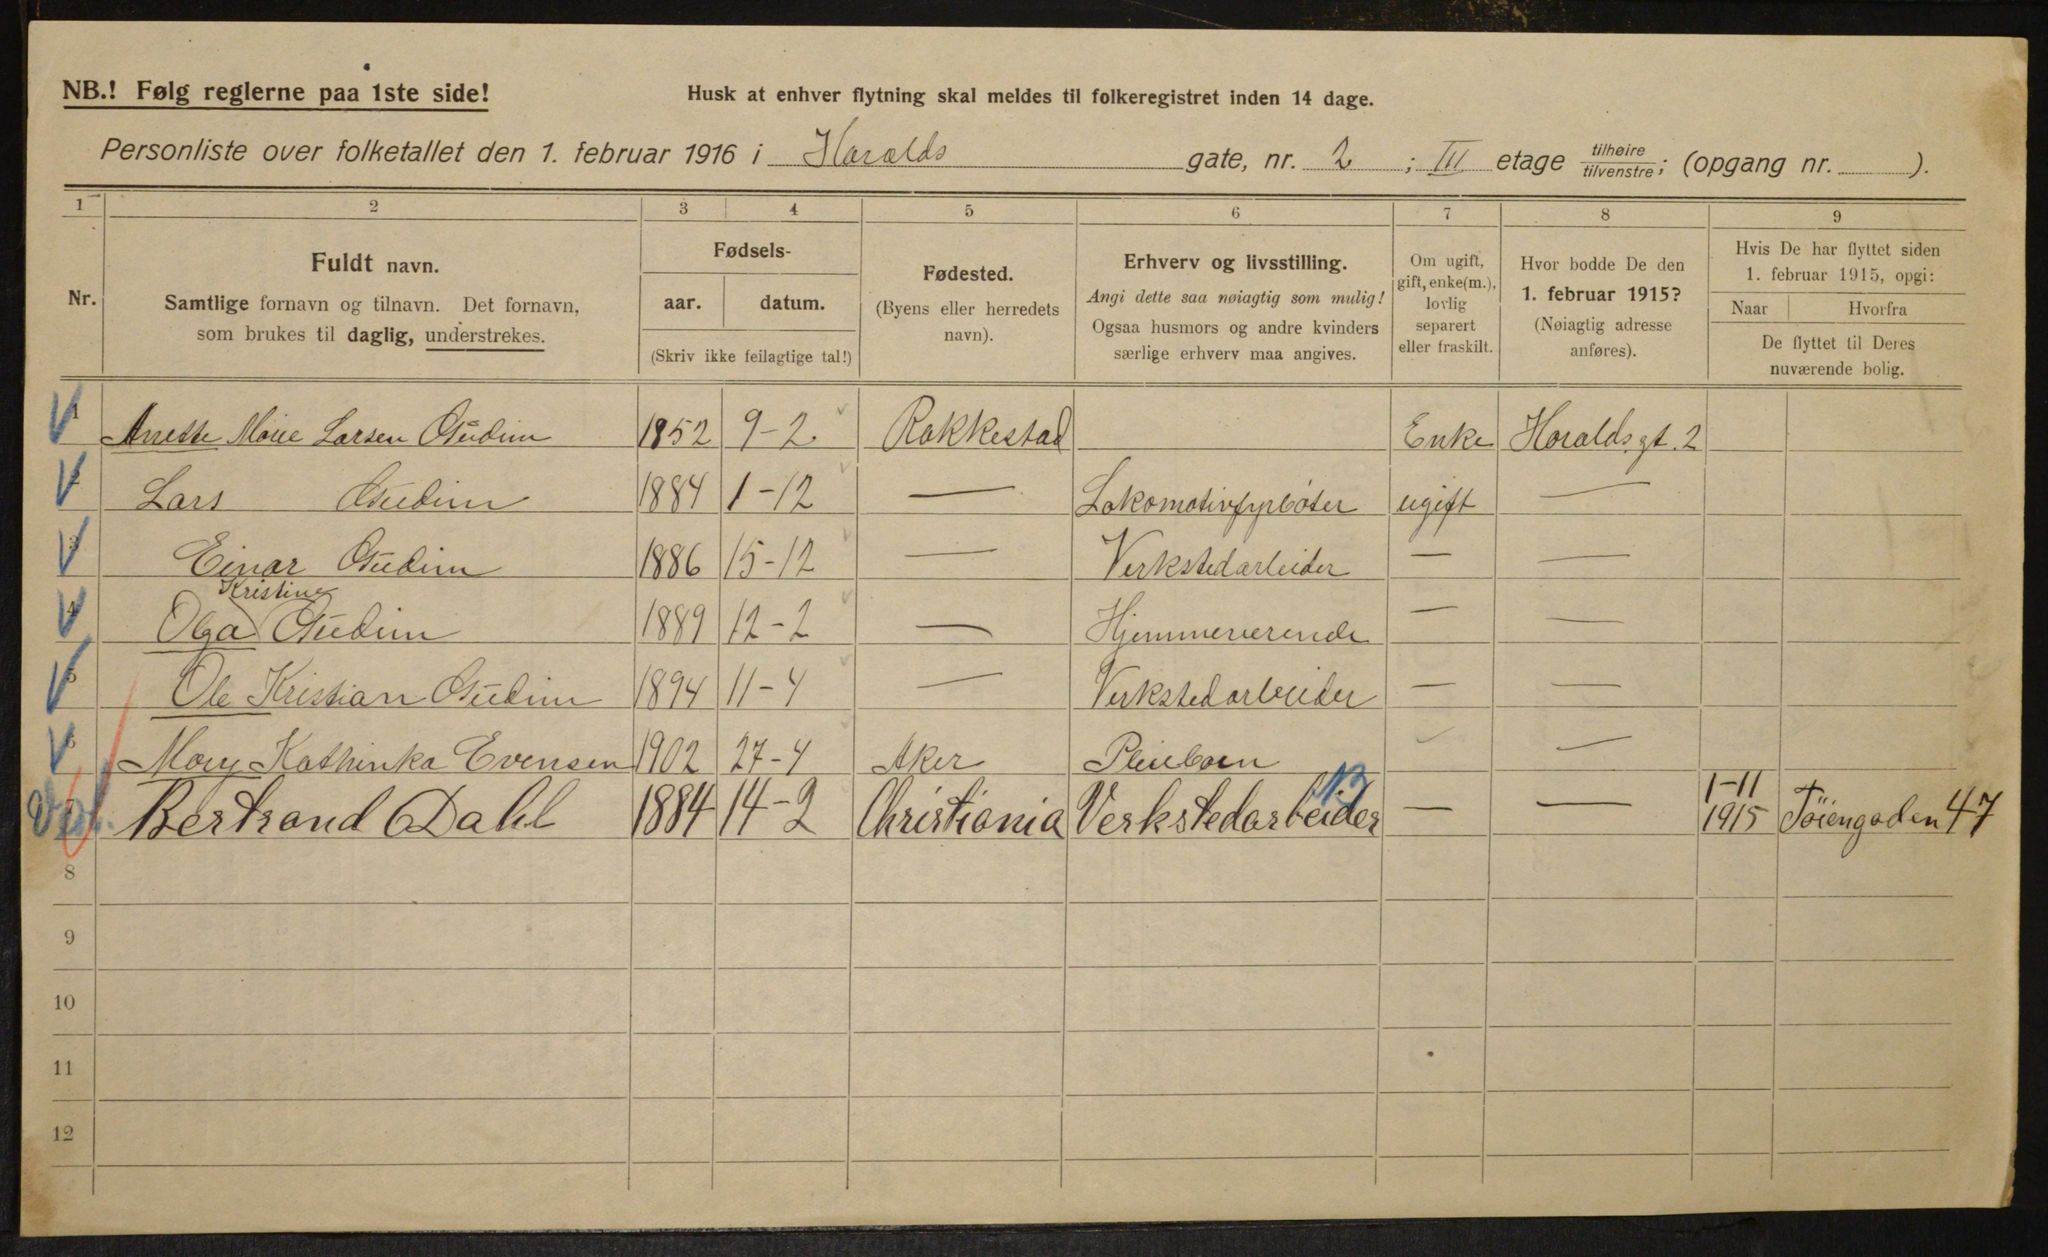 NB.! Følg reglerne paa 1ste side!
Husk at enhver flytning skal meldes til folkeregistret inden 14 dage.
Personliste over folketallet den 1. februar 1916 i Haralds gate, nr. 2 ; III etage tilhøire/tilvenstre; (opgang nr. ).
1 2 3 4 5 6 7 8 9
Nr.
Fuldt navn.
Samtlige fornavn og tilnavn. Det fornavn,
som brukes til daglig, understrekes.
Fødsels-
aar. datum.
(Skriv ikke feilagtige tal!)
Fødested.
(Byens eller herredets
navn).
Erhverv og livsstilling.
Angi dette saa nøiagtig som mulig!
Ogsaa husmors og andre kvinders
særlige erhverv maa angives.
Om ugift,
gift, enke(m.),
lovlig
separert
eller fraskilt.
Hvor bodde De den
1. februar 1915?
(Nøiagtig adresse
anføres).
Hvis De har flyttet siden
1. februar 1915, opgi:
Naar Hvorfra
De flyttet til Deres
nuværende bolig.
1 Anette Marie Larsen Gudim 1852 9-2 Rakkestad Enke Haralds.gt. 2
2 Lars Gudim 1884 1-12 — Lokomotivfyrbøter ugift —
3 Einar Gudim 1886 15-12 — Verkstedarbeider — —
Kristine
4 Olga Gudim 1889 12-2 — Hjemmeverende — —
5 Ole Kristian Gudim 1894 11-4 — Verkstedarbeider — —
6 Mary Kathinka Evensen 1902 27-4 Aker Pleiebarn — —
1-11
Bertrand Dahl 1884 14-2 Christiania Verkstedarbeider — — 1915 Töiengaden 47
8
9
10
11
12